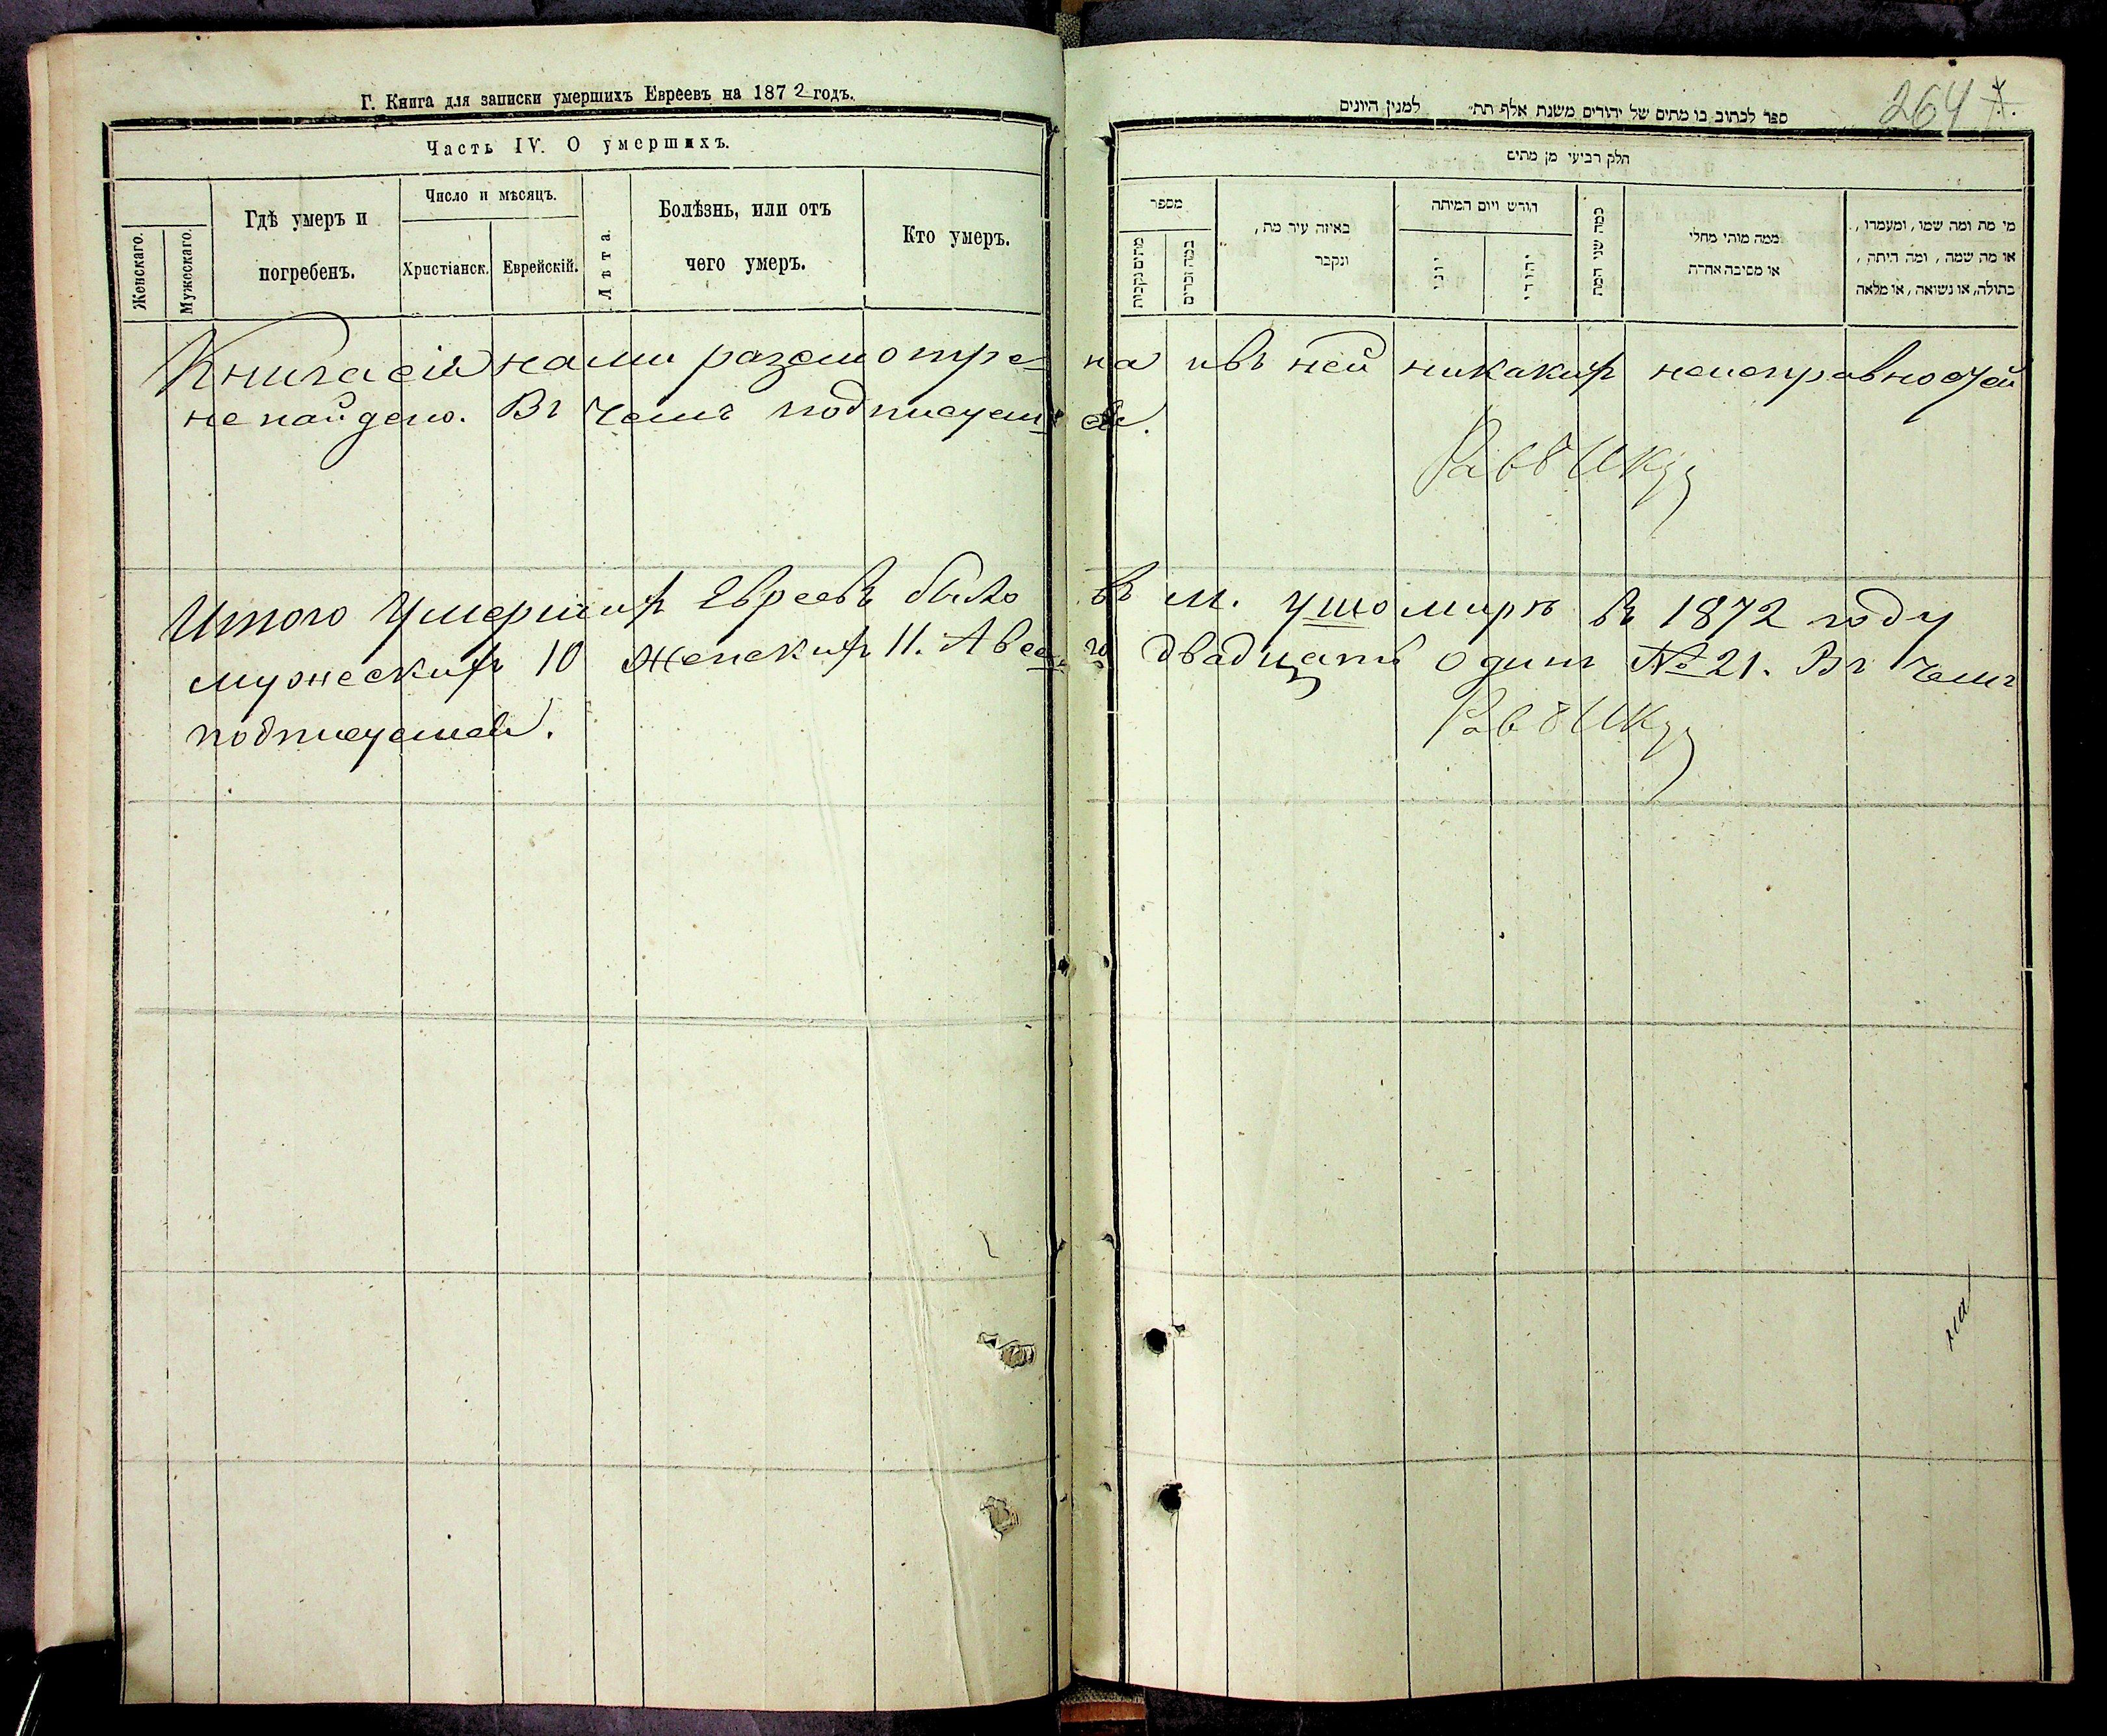 Г. Книга для записки умершихъ Евреевъ на 1872 годъ.
Часть IV. О умершихъ.
Женскаго.
Мужескаго.
Гдѣ умеръ и
погребенъ.
Число и мѣсяцъ.
Христіанск.
Еврейскій.
Лѣта.
Болѣзнь, или отъ
чего умеръ.
Кто умеръ.
264
ספר לכתוב בו מתים של יהודים משנת אלף תת״ למנין היונים
חלק רביעי מן מתים
מספר
מתים נקבות
כמה זכרים
באיזה עיר מת,
ונקבר
חודש ויום המיתה
יוני
יהודי
כמה שני המת
ממה מותי מחלי
או מסיבה אחרת
מי מת ומה שמו, ומעמדו,
או מה שמה, ומה היתה,
בתולה, או נשואה, או מלאה
Книга сія нами разсмотрена и въ ней никакихъ неисправностей
не найдено. Въ чемъ подписуемся.
Итого умершихъ Евреевъ было въ м. Ушомирѣ въ 1872 году
мужескихъ 10 женскихъ 11. А всего двадцать одинъ № 21. Въ чемъ
подписуемся.